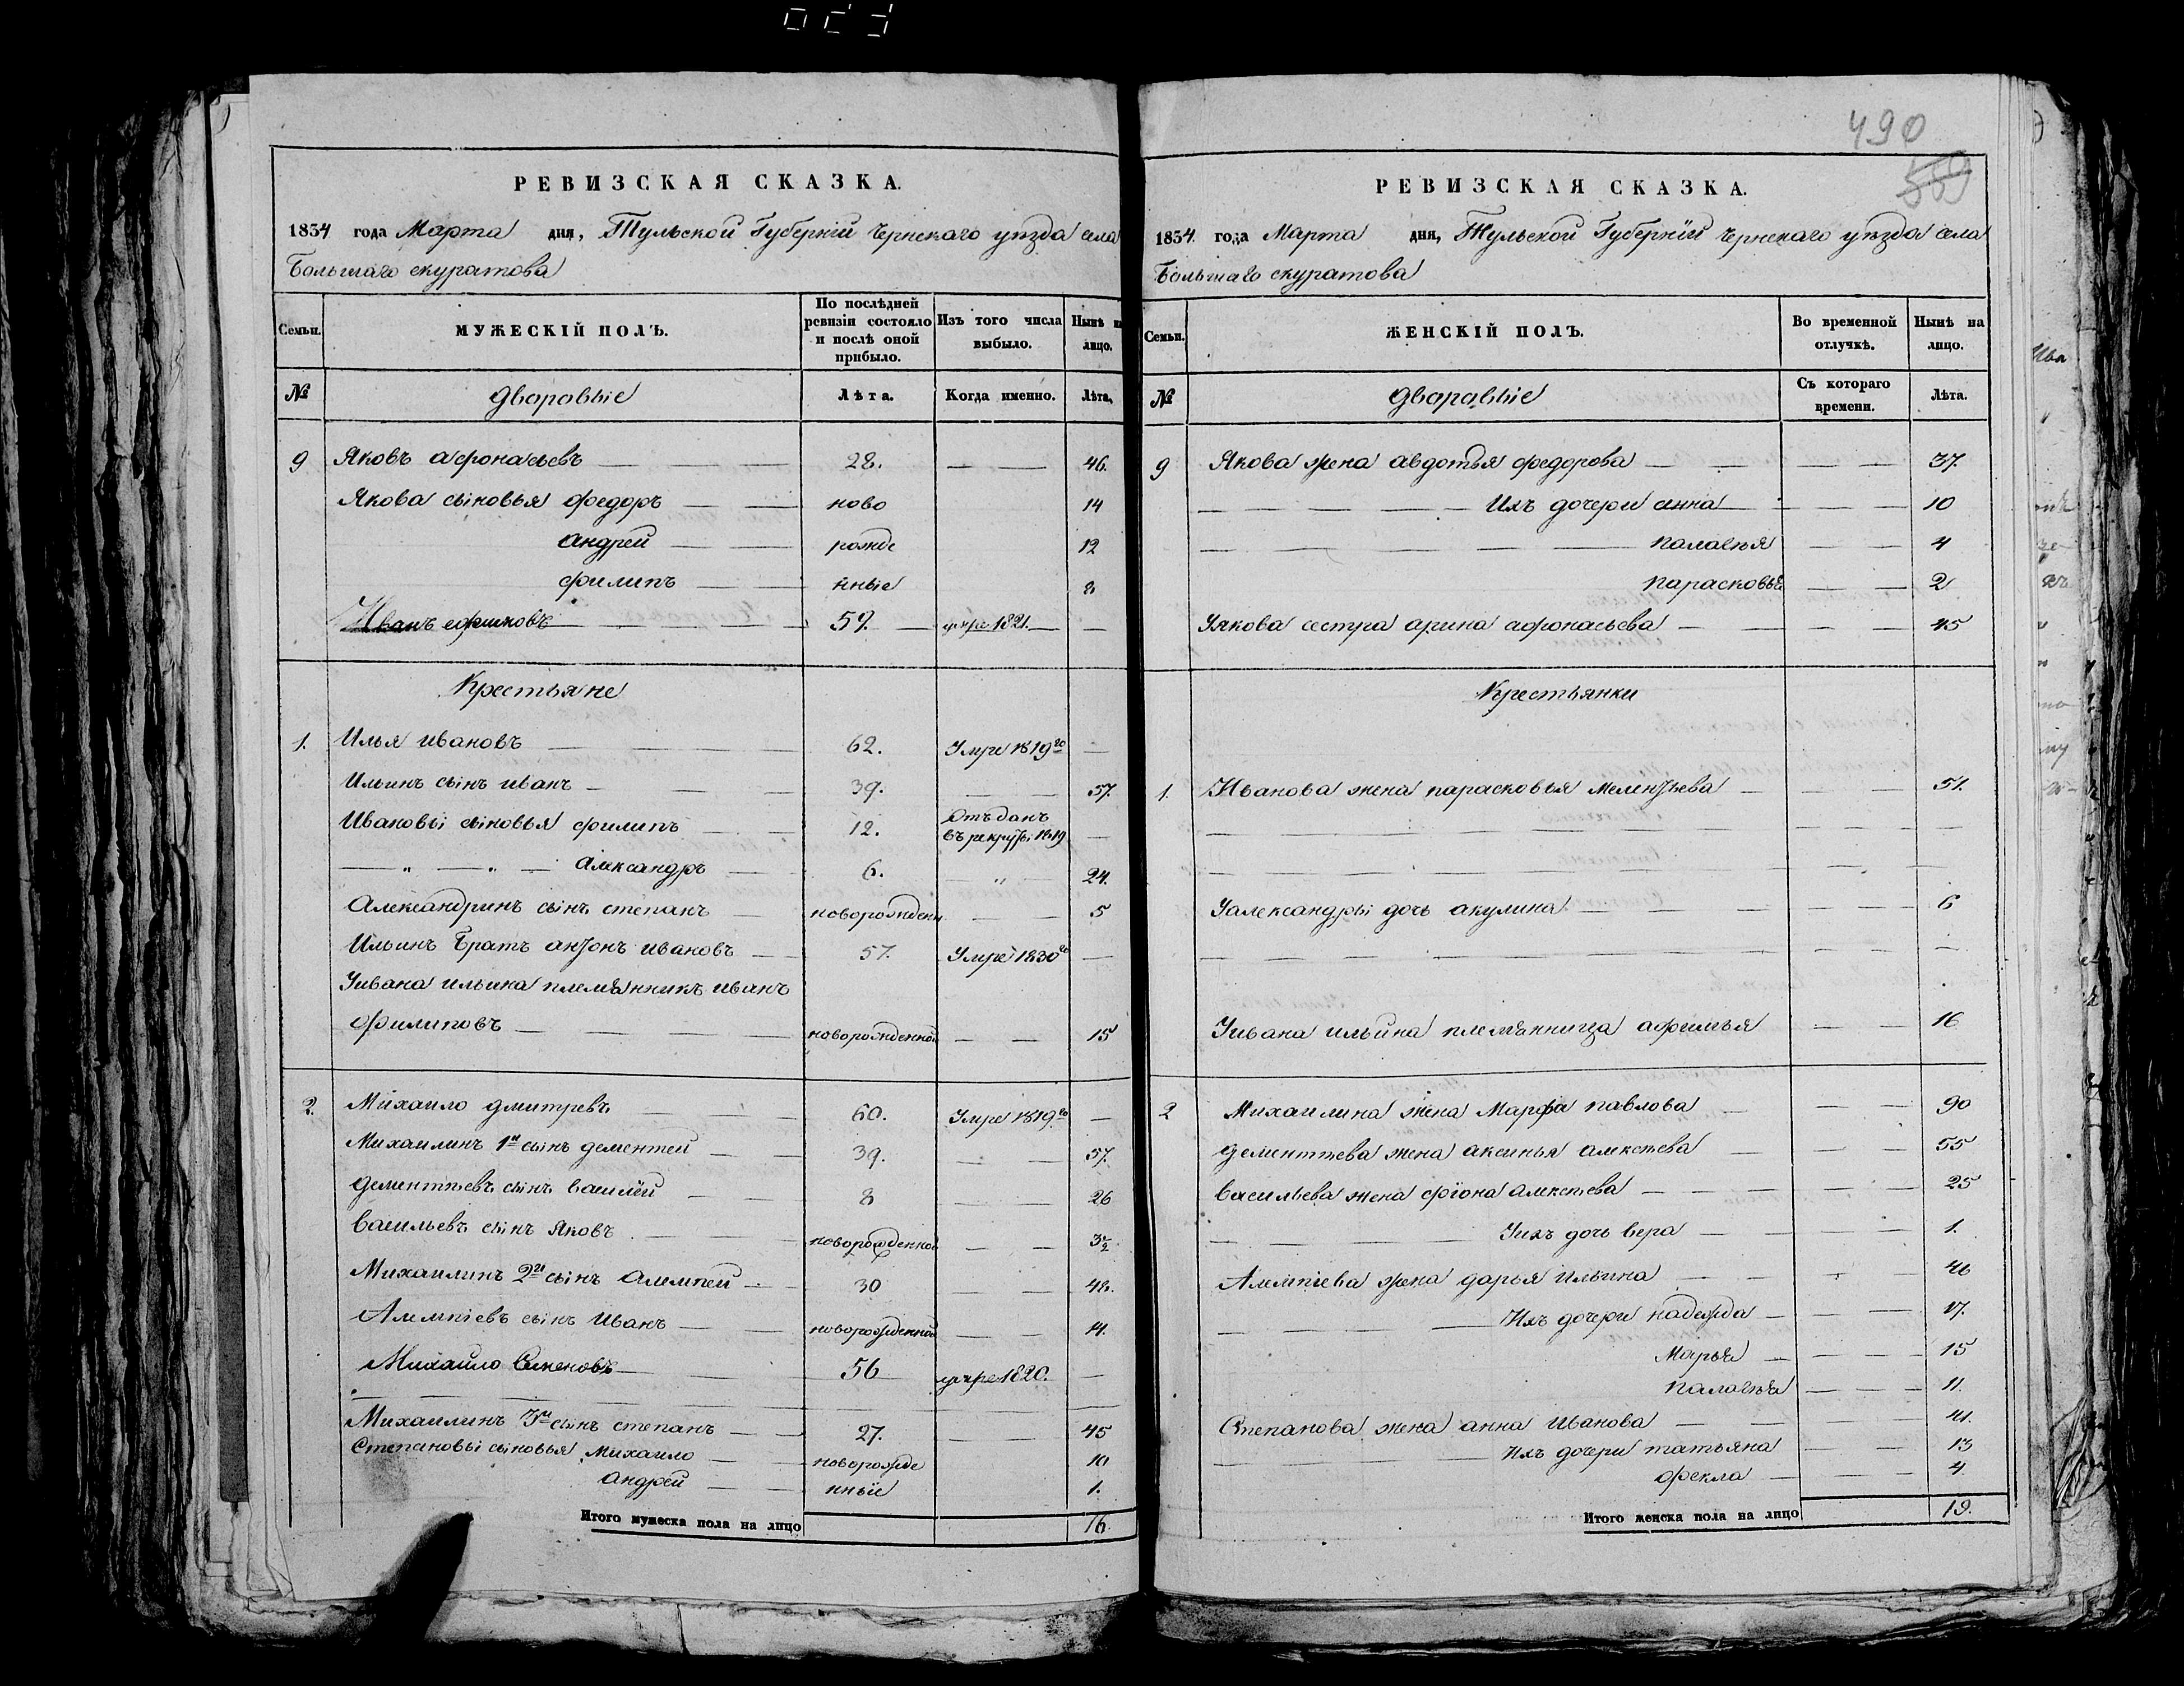 РЕВИЗСКАЯ СКАЗКА.
1834 года Марта дня, Тульской Губерніи Чернскаго уѣзда села
Большаго скуратова
Семьи.
МУЖЕСКІЙ ПОЛЪ.
По послѣдней ревизіи состояло и послѣ оной прибыло.
Изъ того числа выбыло.
Нынѣ на лицо.
№ дворавыіе Лѣта. Когда именно. Лѣта,
9 Яковъ афонасьевъ — — 28. — — 46.
Якова сыновья федоръ — — ново 14
андрей — — рожде 12
филипъ — — нные 8
Иванъ — — 59. — умре 1821. —
Крестьяне
1. Илья ивановъ — — 62. Умре 1819го —
Ильинъ сынъ иванъ — — 39. — — 57.
Ивановы сыновья филипъ — — 12. Отъданъ въ рекруты 1819 —
— „ — „ — александръ — 6. — „ 24.
Александринъ сынъ степанъ — новорожденн — — 5
Ильинъ братъ антонъ ивановъ — 57. Умре 1830го —
Уивана ильина племянникъ иванъ
филиповъ — — новорожденной — — 15
2. Михаило дмитревъ — — 60. Умре 1819го —
Михаилинъ 1й сынъ дементей — — 39. — — 57.
дементьевъ сынъ василей — — 8 — — 26
васильевъ сынъ яковъ — — новорожденной — —
Михаилинъ 2й сынъ алемпей — 30 — — 48.
Алемпіевъ сынъ иванъ — — новорожденной — — 14.
Михайло Семеновъ — — 56 умре 1820. —
Михаилинъ 3й сынъ степанъ — — 27. — — 45
Степановы сыновья Михаило — новорожде 10
андрей — — нные 1.
Итого мужеска пола на лицо 16.
490
РЕВИЗСКАЯ СКАЗКА.
1834 года Марта дня, Тульской Губерніи Чернскаго уѣзда села
Большаго скуратова
Семьи.
ЖЕНСКІЙ ПОЛЪ.
Во временной отлучкѣ.
Нынѣ на лицо.
№ дворавыіе Съ котораго времени. Лѣта.
9 Якова жена авдотья федорова — — — — 37.
— — — — Ихъ дочери анна — — — 10
— — — — палагѣя — — 4
парасковья — — 2
Уякова сестра арина афонасьева — — — — 45
Крестьянки
1. Иванова жена парасковья мелентьева — — — 51.
Уалександры дочь акулина — — — — 6
Уивана ильина племянница афимья — — 16
2 Михаилина жена Марфа павлова — — — 90
дементьева жена аксинья алексѣева — — — 55
васильева жена фіона алексѣева — — — — 25
— — — Уихъ дочь вера — — — — 1.
Алемпіева жена дарья ильина — — — — 46
— — — Ихъ дочери надежда — — — 17.
Марья — — — 15
палагѣя — — — 11.
Степанова жена анна иванова — — 41.
— — — Ихъ дочери татьяна — — 13
фекла — — — 4.
Итого женска пола на лицо 19.